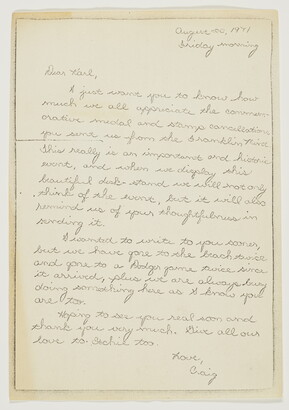 August 20, 1971
Friday morning
Dear Herb,
I just want you to know how
much we all appreciate the commem-
orative medal and stamp cancellation
you sent us from the Franklin Mint.
This really is an important and historic
event, and when we display this
beautiful disk-stand we will not only
think of the event, but it will also
remind us of your thoughtfulness in
sending it.
I wanted to write to you sooner,
but we have gone to the beach twice
and gone to a Dodger game twice since
it arrived, plus we are always busy
doing something here as I know you
are too.
Hoping to see you real soon and
thank you very much. Give all our
love to too.
Love,
Craig